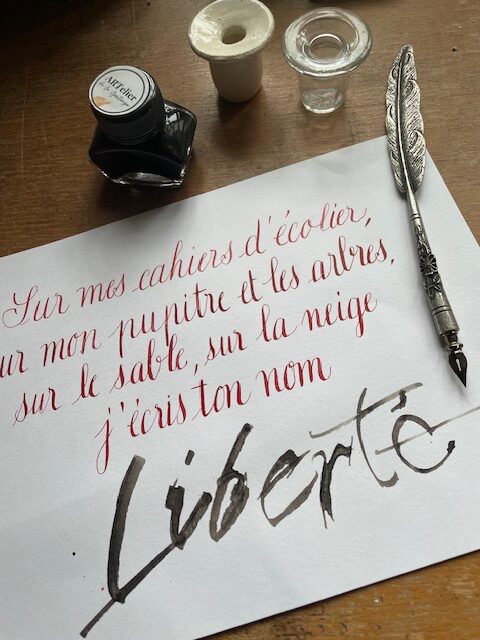 ARTelier
Sur mes cahiers d'écolier,
ur mon pupitre et les arbres,
sur le sable, sur la neige
j'écris ton nom
Liberté